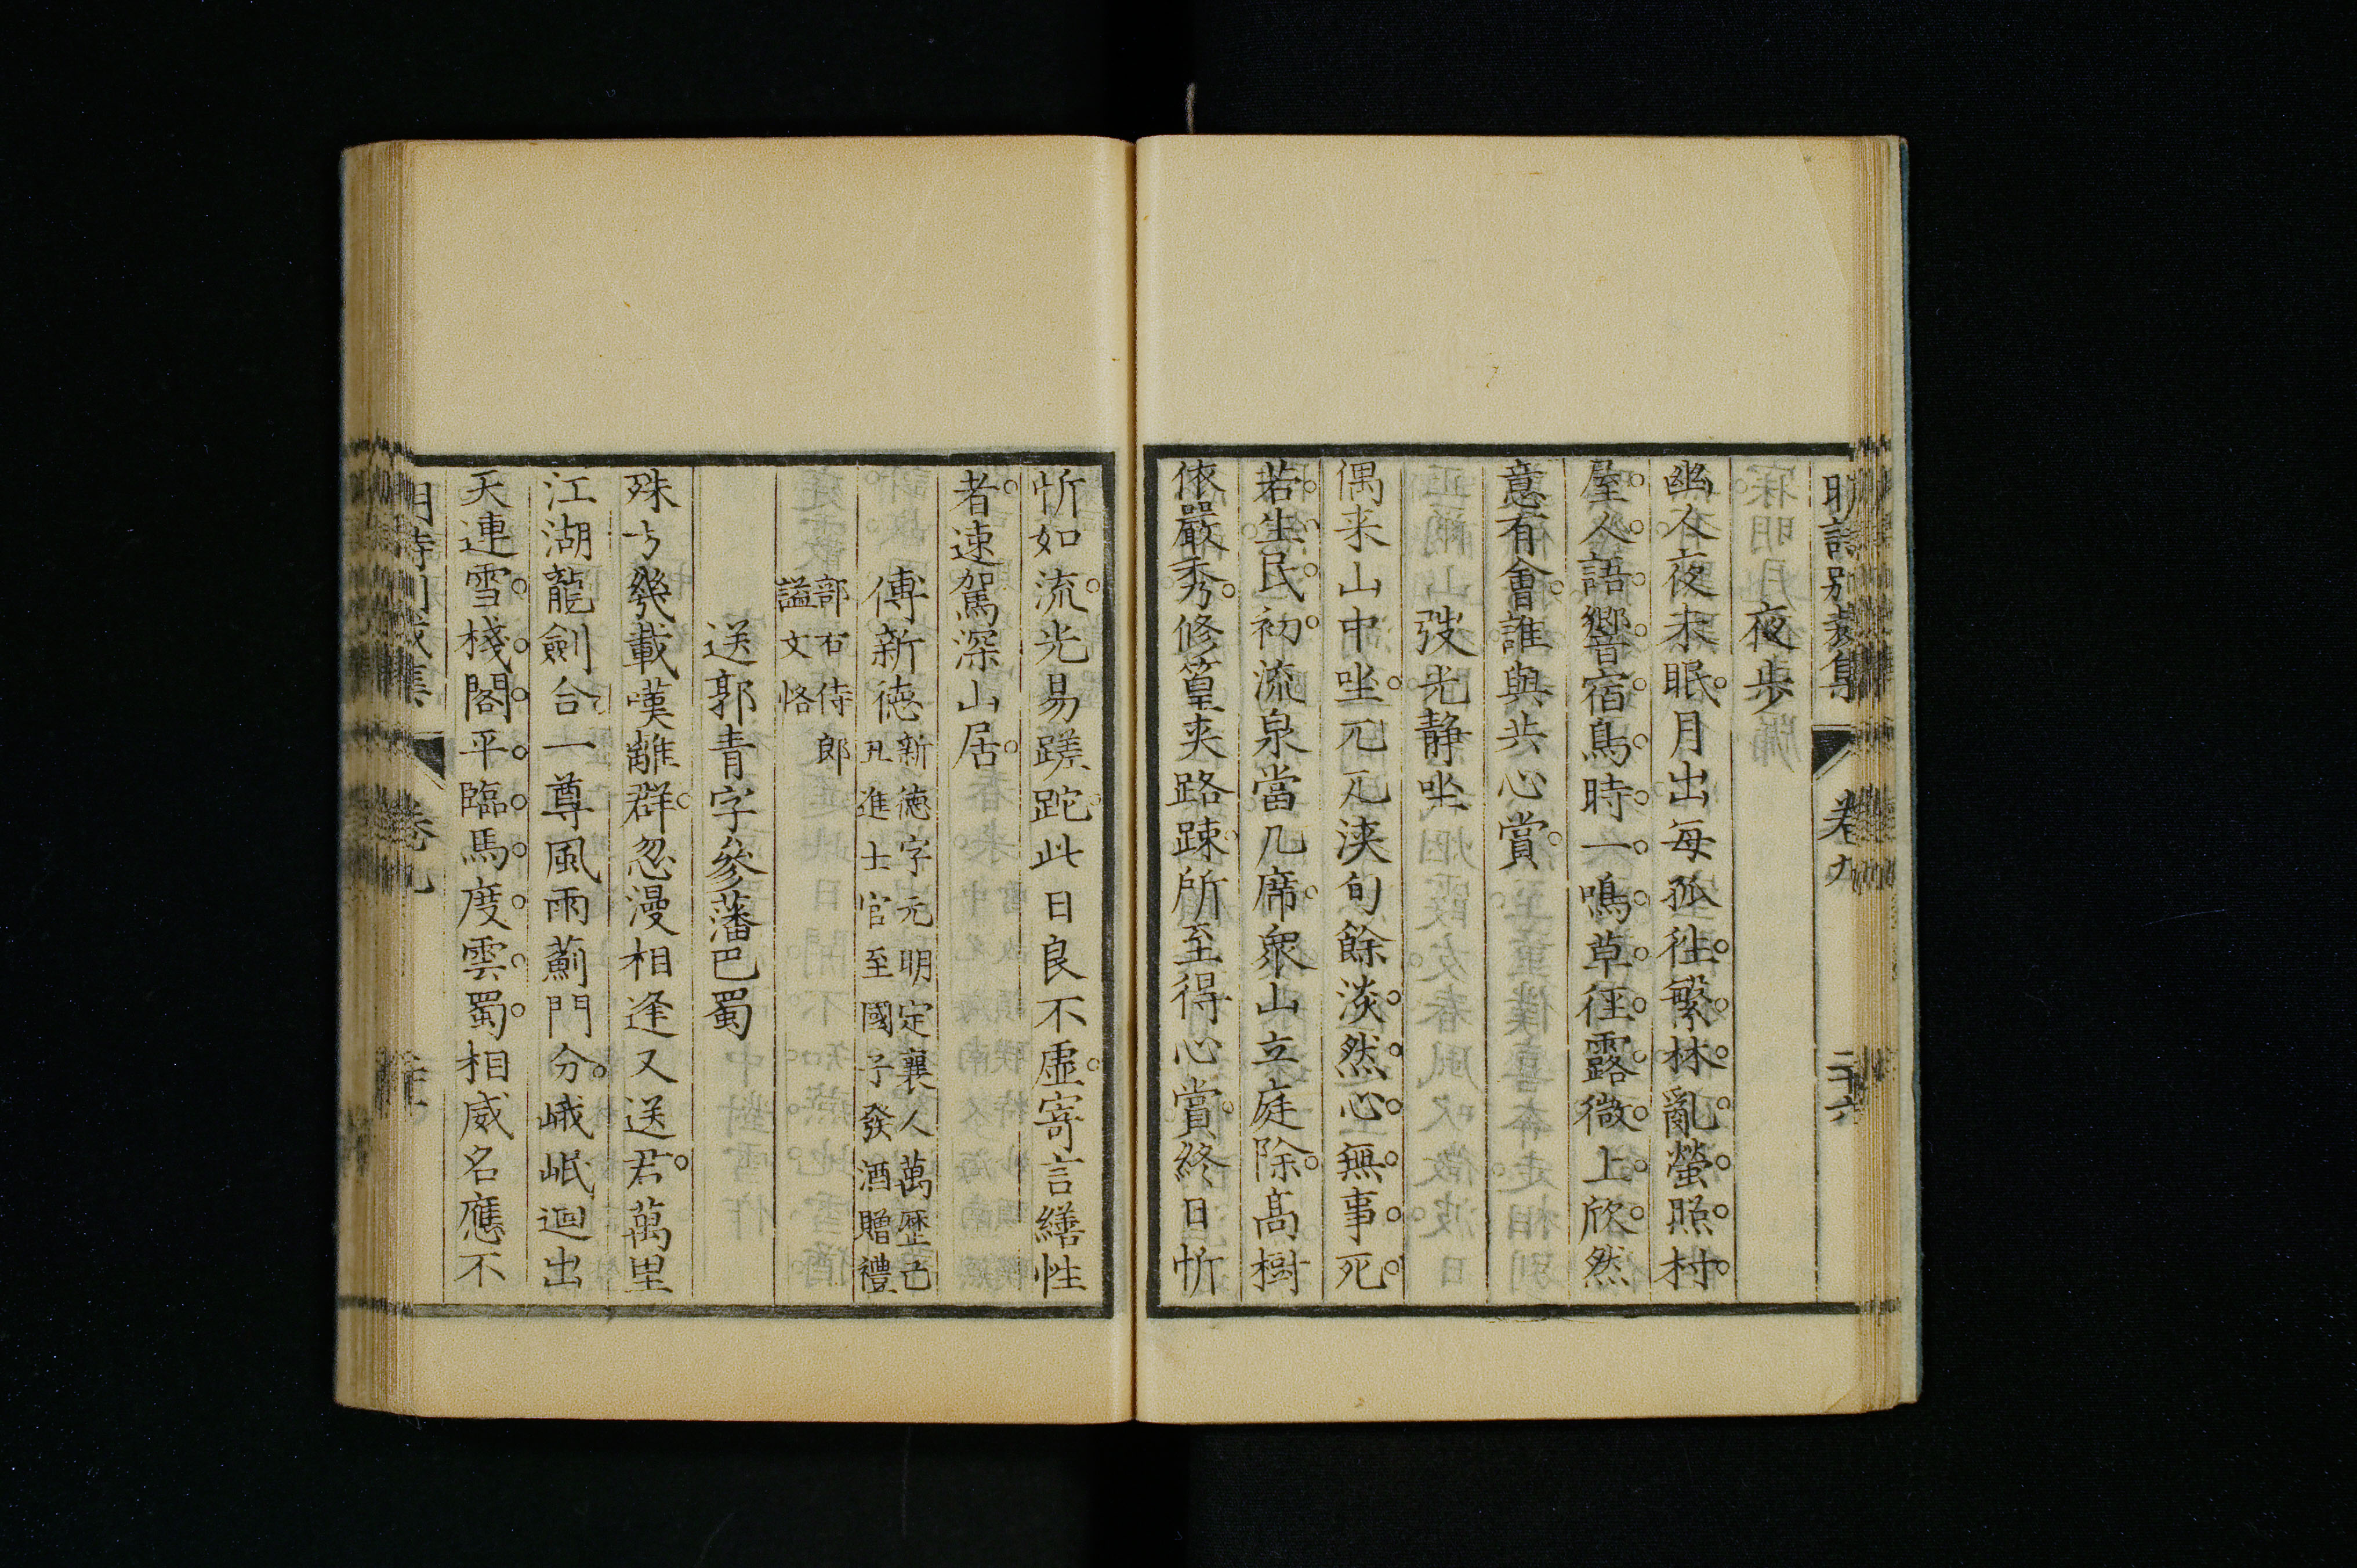 明詩別裁集 卷九 二十六
夜步
幽人夜未眠月出每孤往繁林亂螢照村
屋人語響宿鳥時一鳴草徑露微上欣然
意有會誰與共心賞
弢光靜坐
偶來山中坐兀兀浹旬餘淡然心無事死
若生民初流泉當几席衆山立庭除高樹
依嚴秀修篁夾路踈所至得心賞終日忻
忻如流光易蹉跎此日良不虛寄言繕性
者速駕深山居
傅新德新德字元明定襄人萬歷己
丑進士官至國子祭酒贈禮
部右侍郎
謚文恪
送郭青字參藩巴蜀
殊方幾載嘆離群忽漫相逢又送君萬里
江湖龍劍合一尊風雨薊門分峨岷迴出
天連雪棧閣平臨馬度雲蜀相威名應不
明詩別裁集 卷九